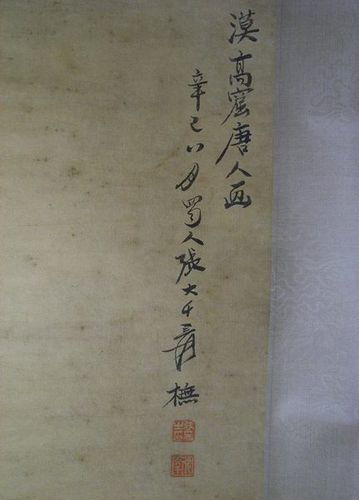 漠高窟唐人画
辛巳八月蜀人張大千爰橅